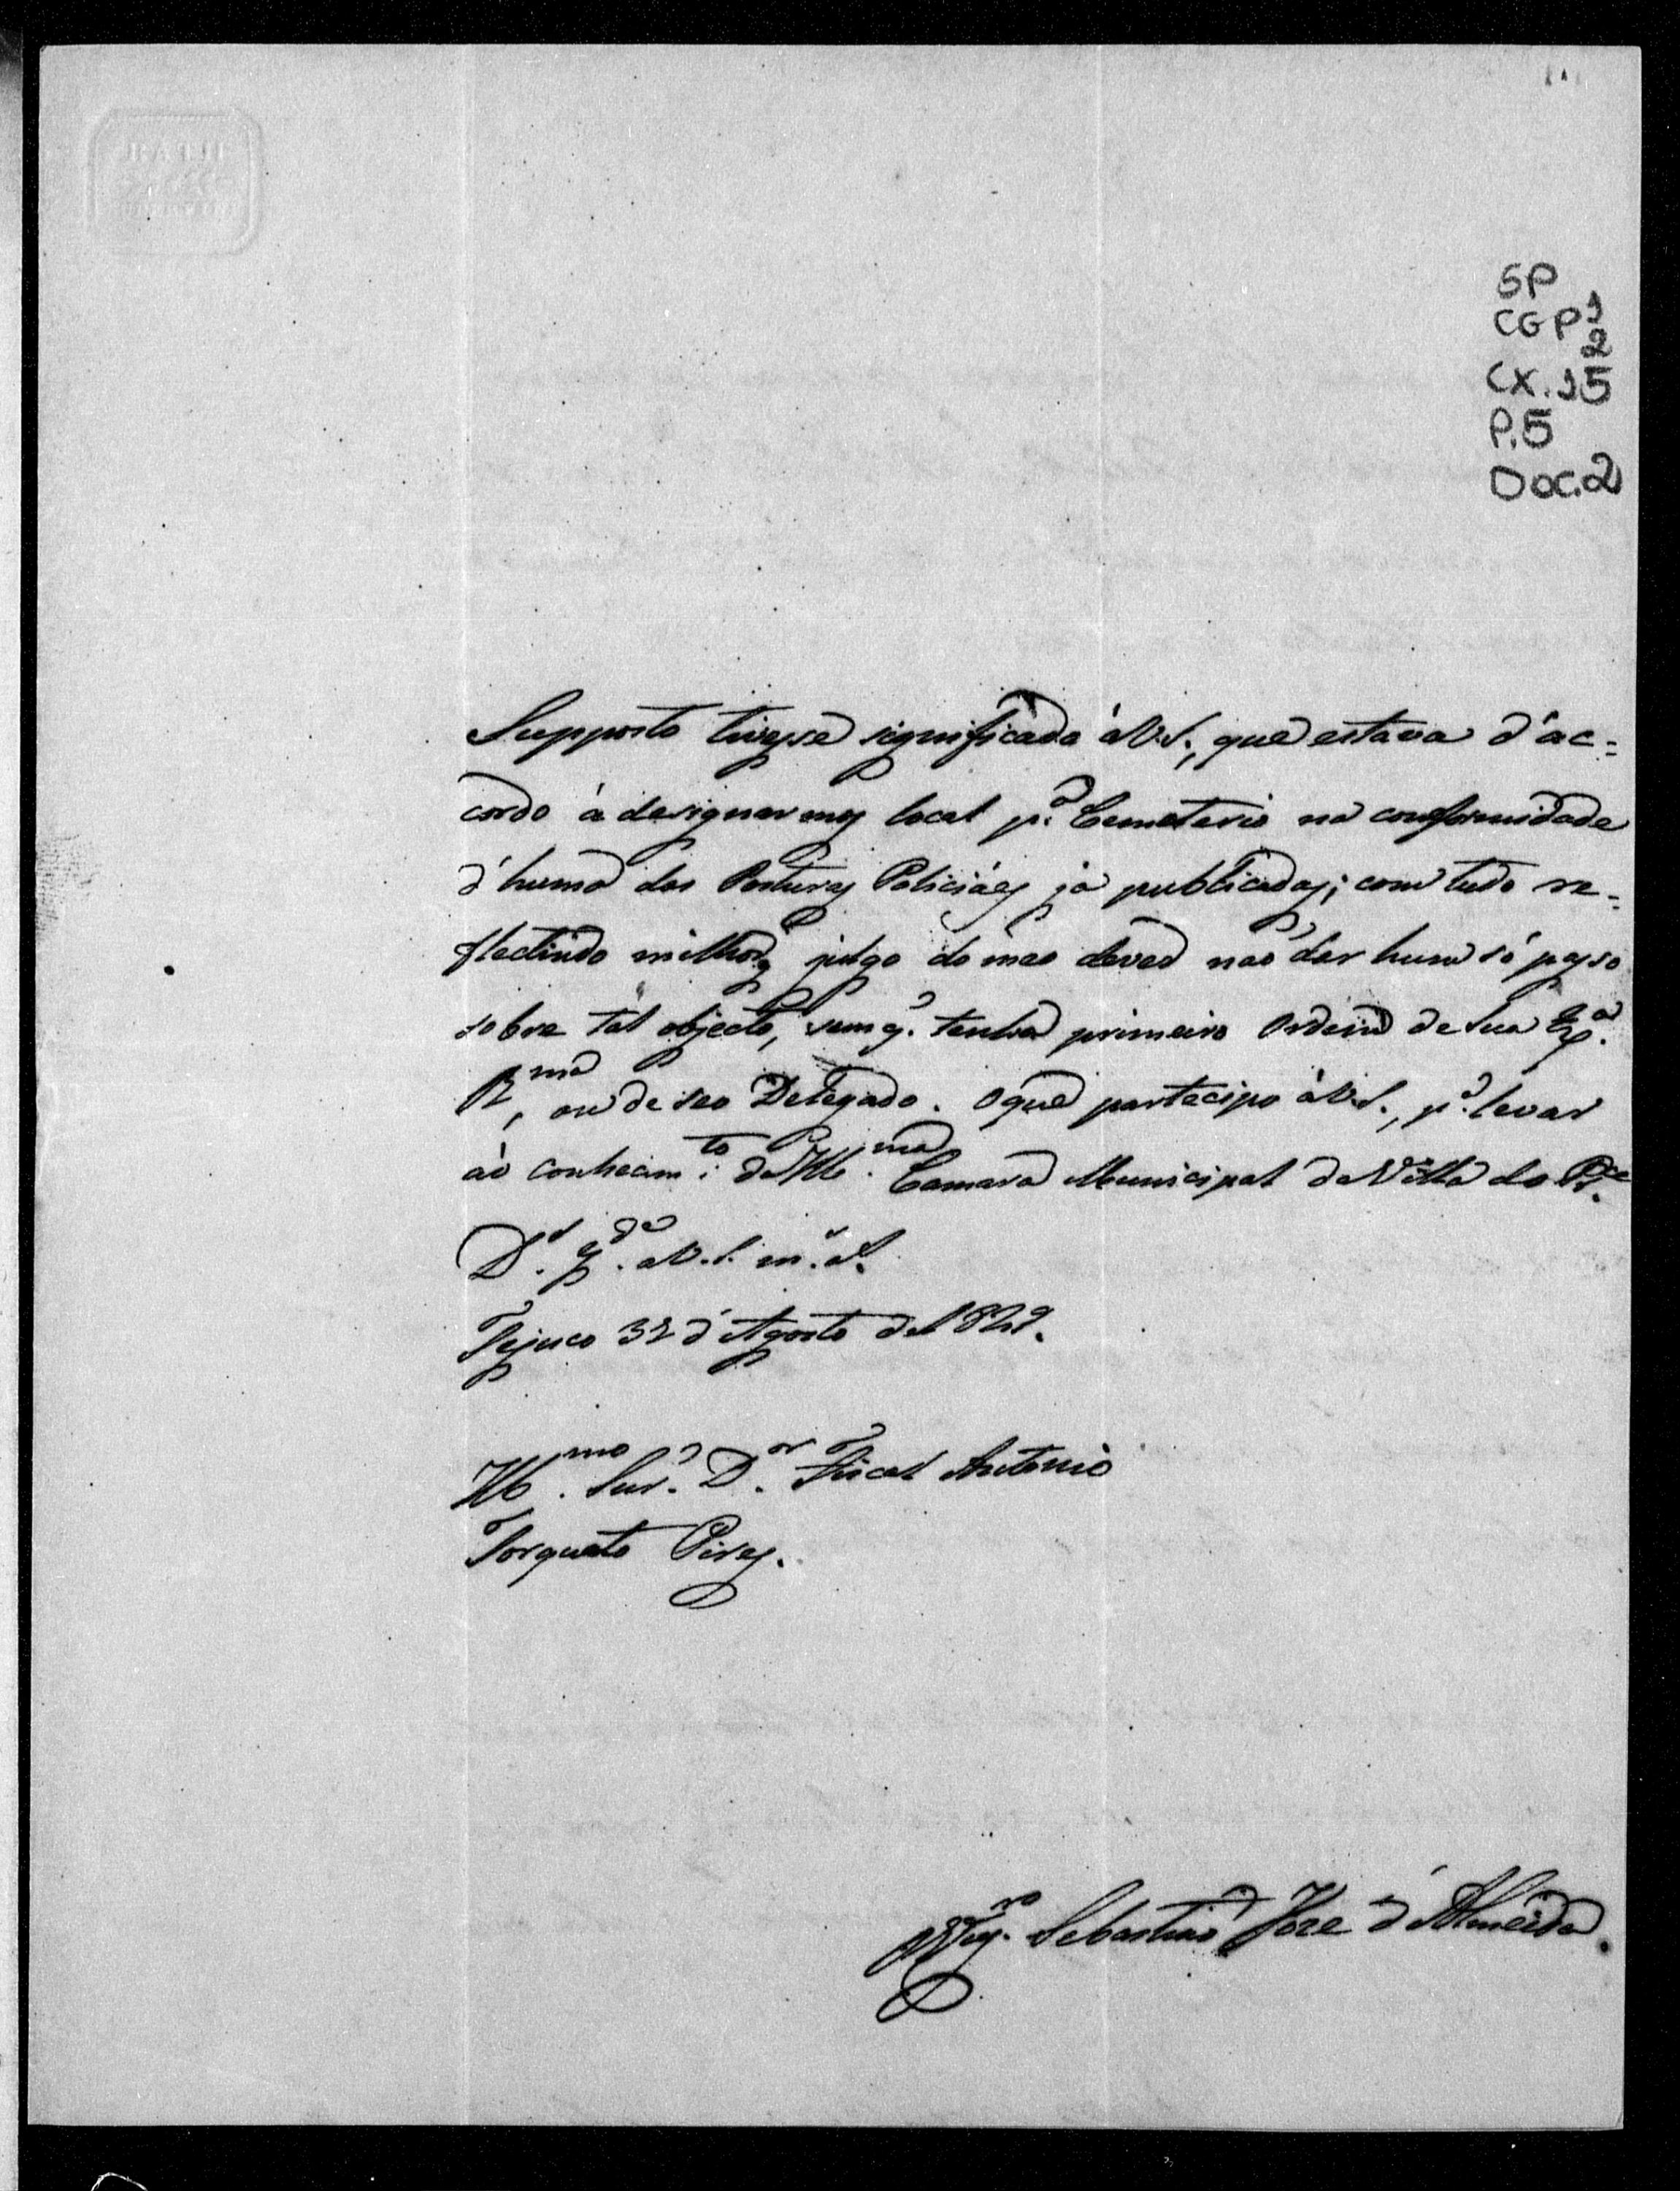 SP
CGP 1
2
CX. 15
P. 5
Doc. 2
Supposto tivesse significado á V.S., que estava d'ac=
cordo á designarmos local p.ª Cemeterio na conformidade
d'huma das Posturas Policiáes ja publicadas; com tudo re=
flectindo milhor, julgo do meo dever não dar hum só passo
sobre tal objecto, sem q. tenha primeiro Ordem de Sua Ex.ª
R.ma, ou de seo Delegado. O que partecipo á V.S., p.ª levar
ao conhecim.to da Ill.ma Camara Municipal da Villa do Pr.e
D.s g.de a V.S. m.s a.s
Tejuco 31 d'Agosto de 1829.
Ill.mo Snr. D.or Fiscal Antonio
Torquato Pires.
Sebastião Joze d'Almeida.